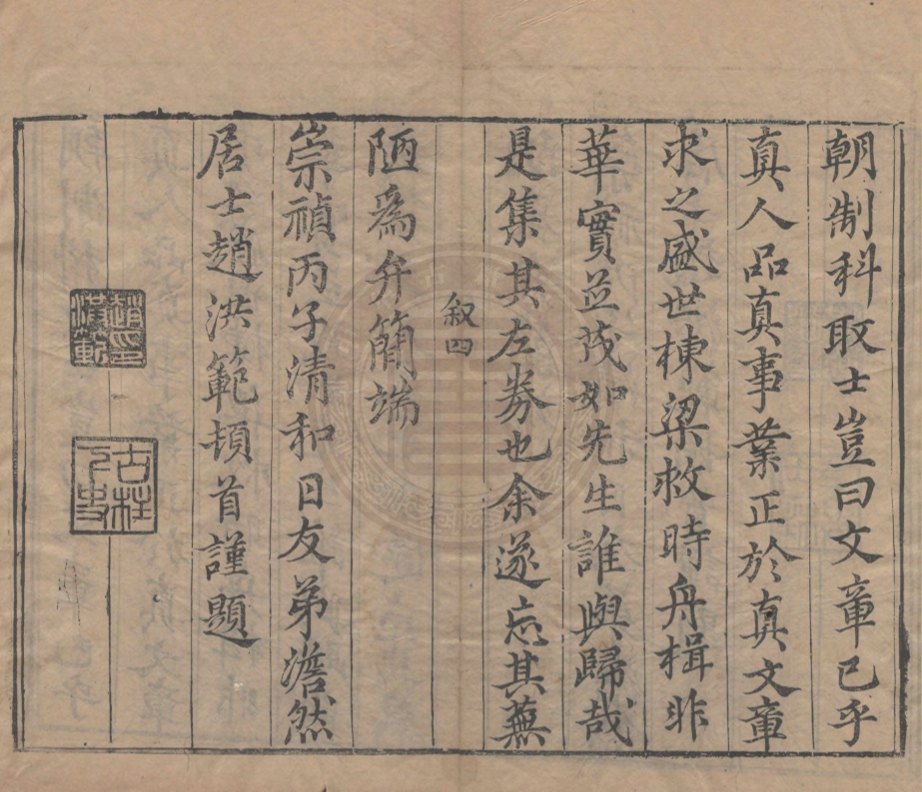 朝制科取士豈曰文章已乎
真人品真事業正於真文章
求之盛世棟梁救時舟楫非
華實並茂如先生誰與歸哉
是集其左券也余遂忘其蕪
敘四
陋為弁簡端
崇禎丙子清和日友弟澹然
居士趙洪範頓首謹題
趙洪範印